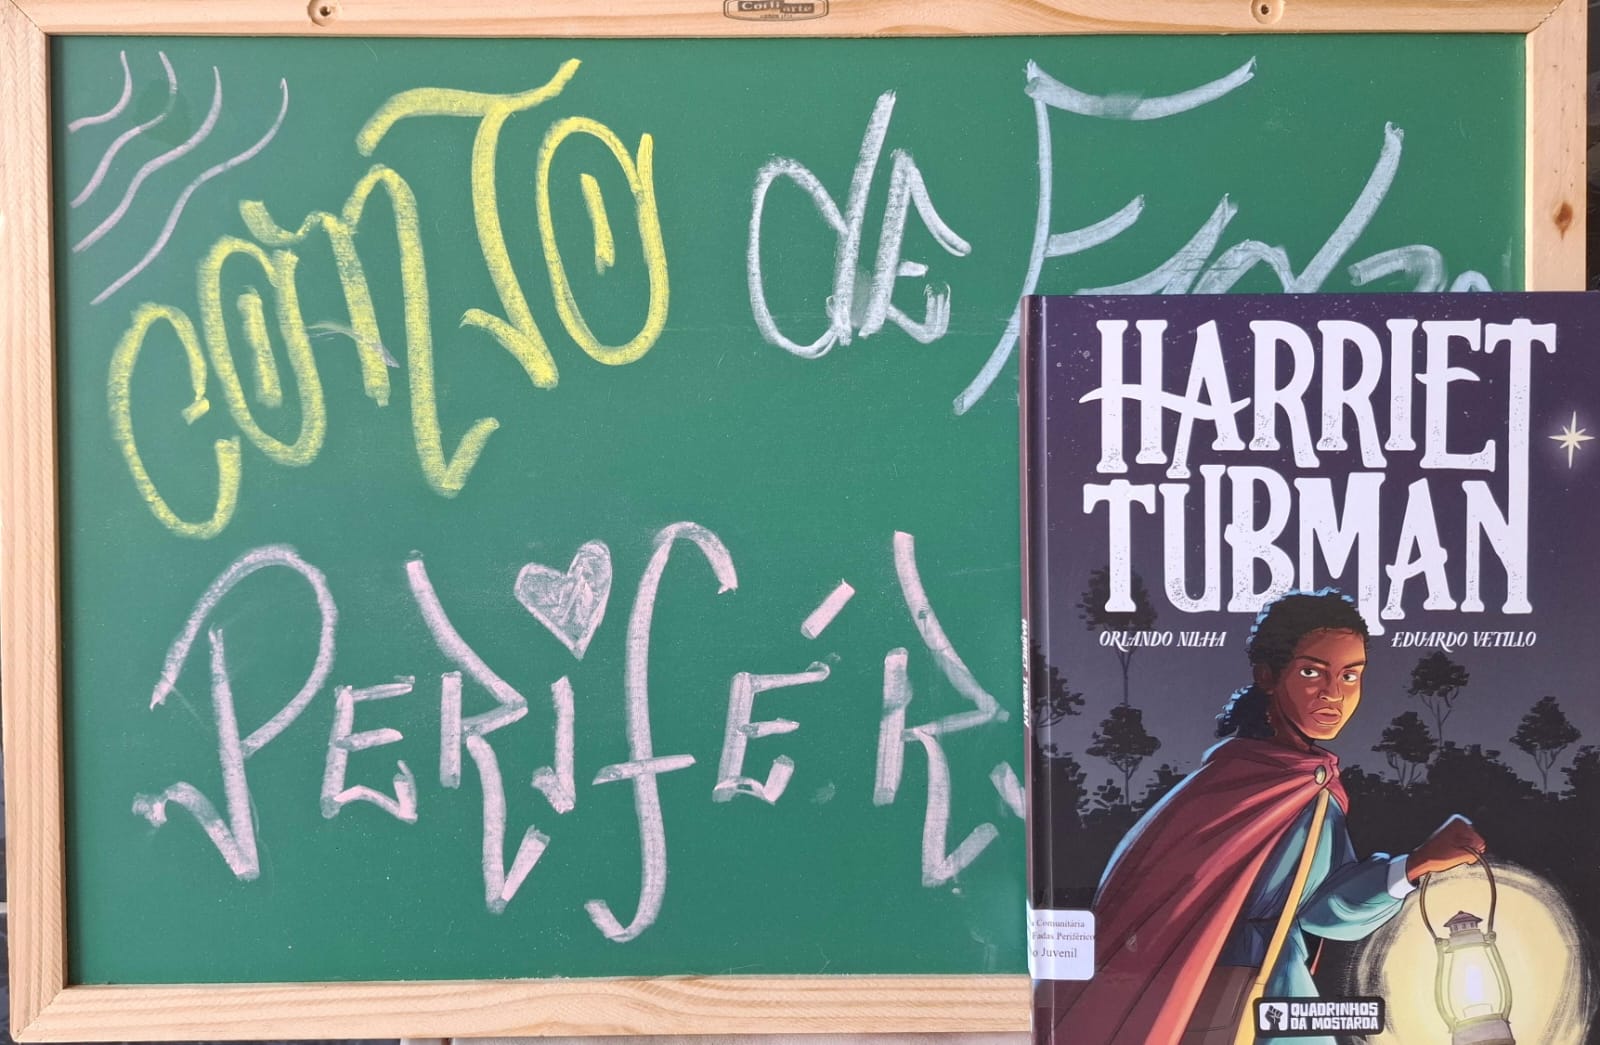 CONTO dE FADAS
PERIFÉR
HARRIET
TUBMAN
ORLANDO NILHA EDUARDO VETILLO
HARRIET TUBMAN
a Comunitária
Fadas Periférico
o Juvenil
QUADRINHOS
DA MOSTARDA